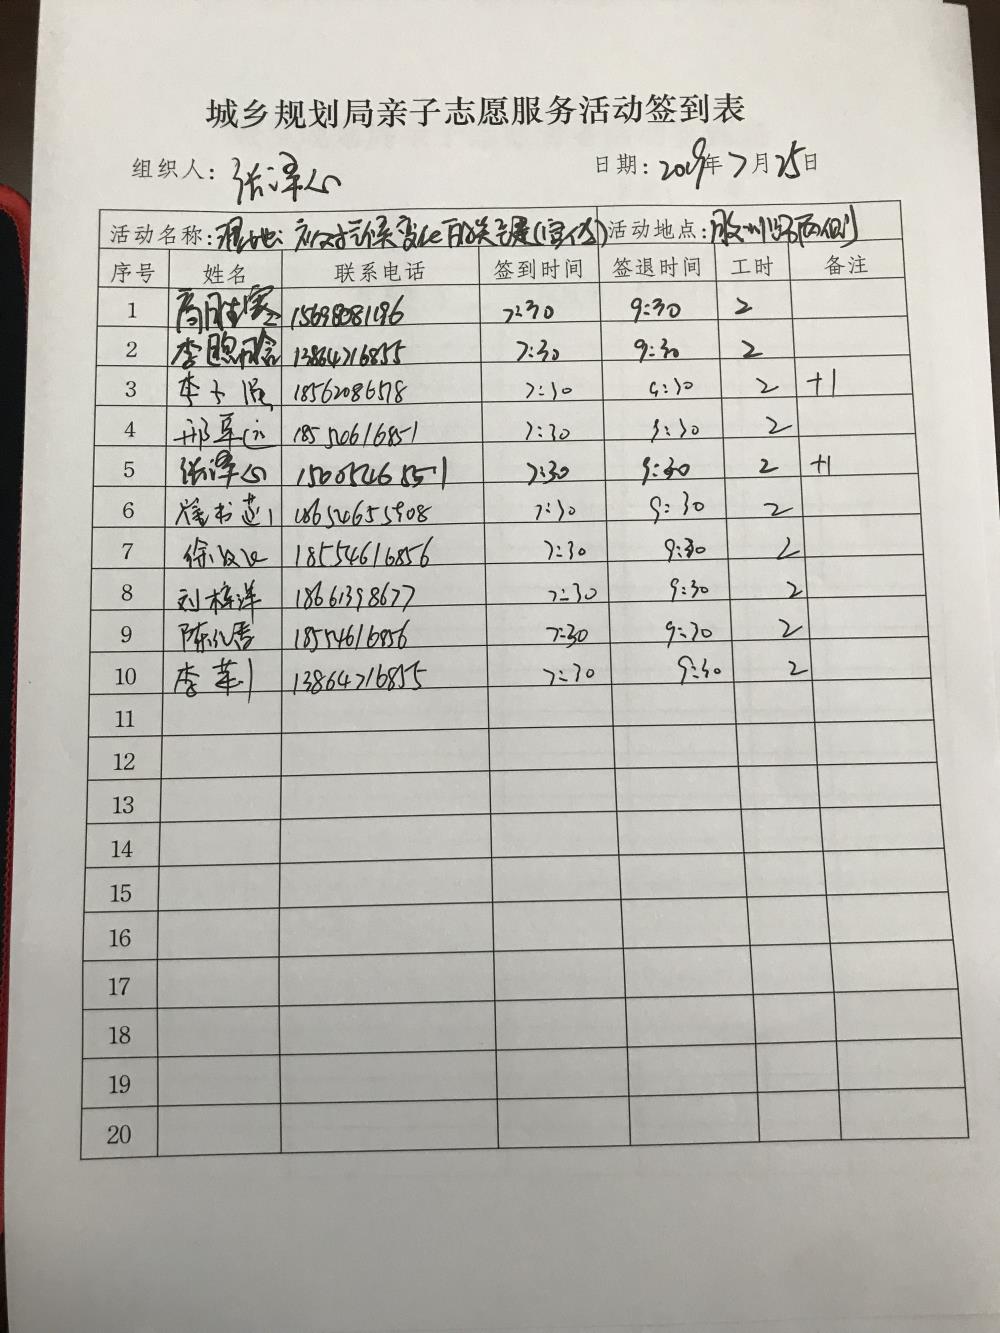 城乡规划局亲子志愿服务活动签到表
组织人: 张泽心 日期: 2019年7月25日
活动名称: 湿地: 应对气候变化的关键(宣传) 活动地点: 胶州路两侧
序号 姓名 联系电话 签到时间 签退时间 工时 备注
1 15698081196 7:30 9:30 2
2 李 13864716855 7:30 9:30 2
3 李子 18562086578 7:30 9:30 2 +1
4 邢军 18554616851 7:30 9:30 2
5 张泽心 15005468551 7:30 9:30 2 +1
6 18654655908 7:30 9:30 2
7 徐 18554616856 7:30 9:30 2
8 刘梓洋 18661398677 7:30 9:30 2
9 陈 18554616856 7:30 9:30 2
10 李 13864716855 7:30 9:30 2
11
12
13
14
15
16
17
18
19
20